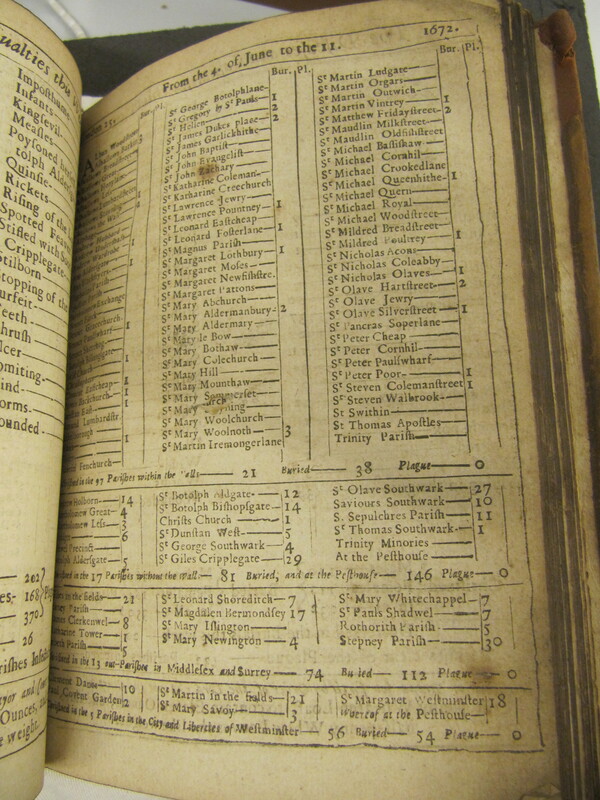 ualties this
Imposthum
Infants
Kingsevil
Measles
Poysoned
tolph Alder
Quinsie
Rickets
Rising of the
Spotted Feav
Stifled with
Cripplegate
Stilborn
Stopping of the
Surfeit
Teeth
Thrush
Ulcer
Vomiting
Wind
Worms
ounded
202
168
370
26
From the 4. of, June to the 11.
1672.
Bur. Pl.
Sᵗ George Botolphlane
Sᵗ Gregory by Sᵗ Pauls 1
Sᵗ Hellen 2
Sᵗ James Dukes place 2
Sᵗ James Garlickhithe
Sᵗ John Baptist
Sᵗ John Evangelist
Sᵗ John Zachary
Sᵗ Katharine Coleman
Sᵗ Katharine Creechurch
Sᵗ Lawrence Jewry
Sᵗ Lawrence Pountney 1
Sᵗ Leonard Eastcheap
Sᵗ Leonard Fosterlane 1
Sᵗ Magnus Parish
Sᵗ Margaret Lothbury 1
Sᵗ Margaret Moses
Sᵗ Margaret Newfishstre.
Sᵗ Margaret Pattons
Sᵗ Mary Abchurch
Sᵗ Mary Aldermanbury 2
Sᵗ Mary Aldermary
Sᵗ Mary le Bow
Sᵗ Mary Bothaw
Sᵗ Mary Colechurch
Sᵗ Mary Hill
Sᵗ Mary Mounthaw
Sᵗ Mary Somerset
Sᵗ Mary
Sᵗ Mary Woolchurch
Sᵗ Mary Woolnoth 3
Sᵗ Martin Iremongerlane
Bur. Pl.
Sᵗ Martin Ludgate
Sᵗ Martin Orgars
Sᵗ Martin Outwich
Sᵗ Martin Vintrey 1
Sᵗ Matthew Fridaystreet 2
Sᵗ Maudlin Milkstreet
Sᵗ Maudlin Oldfishstreet
Sᵗ Michael Bassishaw
Sᵗ Michael Cornhil
Sᵗ Michael Crookedlane
Sᵗ Michael Queenhithe 1
Sᵗ Michael Quern
Sᵗ Michael Royal
Sᵗ Michael Woodstreet
Sᵗ Mildred Breadstreet
Sᵗ Mildred Poultrey 1
Sᵗ Nicholas Acons
Sᵗ Nicholas Coleabby
Sᵗ Nicholas Olaves 1
Sᵗ Olave Hartstreet 2
Sᵗ Olave Jewry
Sᵗ Olave Silverstreet 1
Sᵗ Pancras Soperlane
Sᵗ Peter Cheap
Sᵗ Peter Cornhil
Sᵗ Peter Paulswharf
Sᵗ Peter Poor 1
Sᵗ Steven Colemanstreet 1
Sᵗ Steven Walbrook
St Swithin
St Thomas Apostles
Trinity Parish
in the 97 Parishes within the Walls 21 Buried 38 Plague 0
Holborn 14
Great 4
Less 3
6
Precinct
Aldersgate 5
Sᵗ Botolph Aldgate 12
Sᵗ Botolph Bishopsgate 14
Christs Church 1
Sᵗ Dunstan West 5
Sᵗ George Southwark 4
Sᵗ Giles Cripplegate 29
Sᵗ Olave Southwark 27
Saviours Southwark 10
S. Sepulchres Parish 11
Sᵗ Thomas Southwark 1
Trinity Minories
At the Pesthouse
in the 17 Parishes without the Wall 81 Buried, and at the Pesthouse 146 Plague 0
in the fields 21
Parish
Clerkenwel 8
Tower 1
Parish 5
Sᵗ Leonard Shoreditch 7
Sᵗ Magdalen Bermondsey 17
Sᵗ Mary Islington
Sᵗ Mary Newington 4
Sᵗ Mary Whitechappel 7
Sᵗ Pauls Shadwel 7
Rothorith Parish 5
Stepney Parish 30
in the 13 out-Parishes in Middlesex and Surrey 74 Buried 112 Plague 0
Danes 10
Covent Garden 2
Sᵗ Martin in the fields 21
Sᵗ Mary Savoy 3
Sᵗ Margaret Westminster 18
whereof at the Pesthouse
in the 5 Parishes in the City and Liberties of Westminster 56 Buried 54 Plague 0